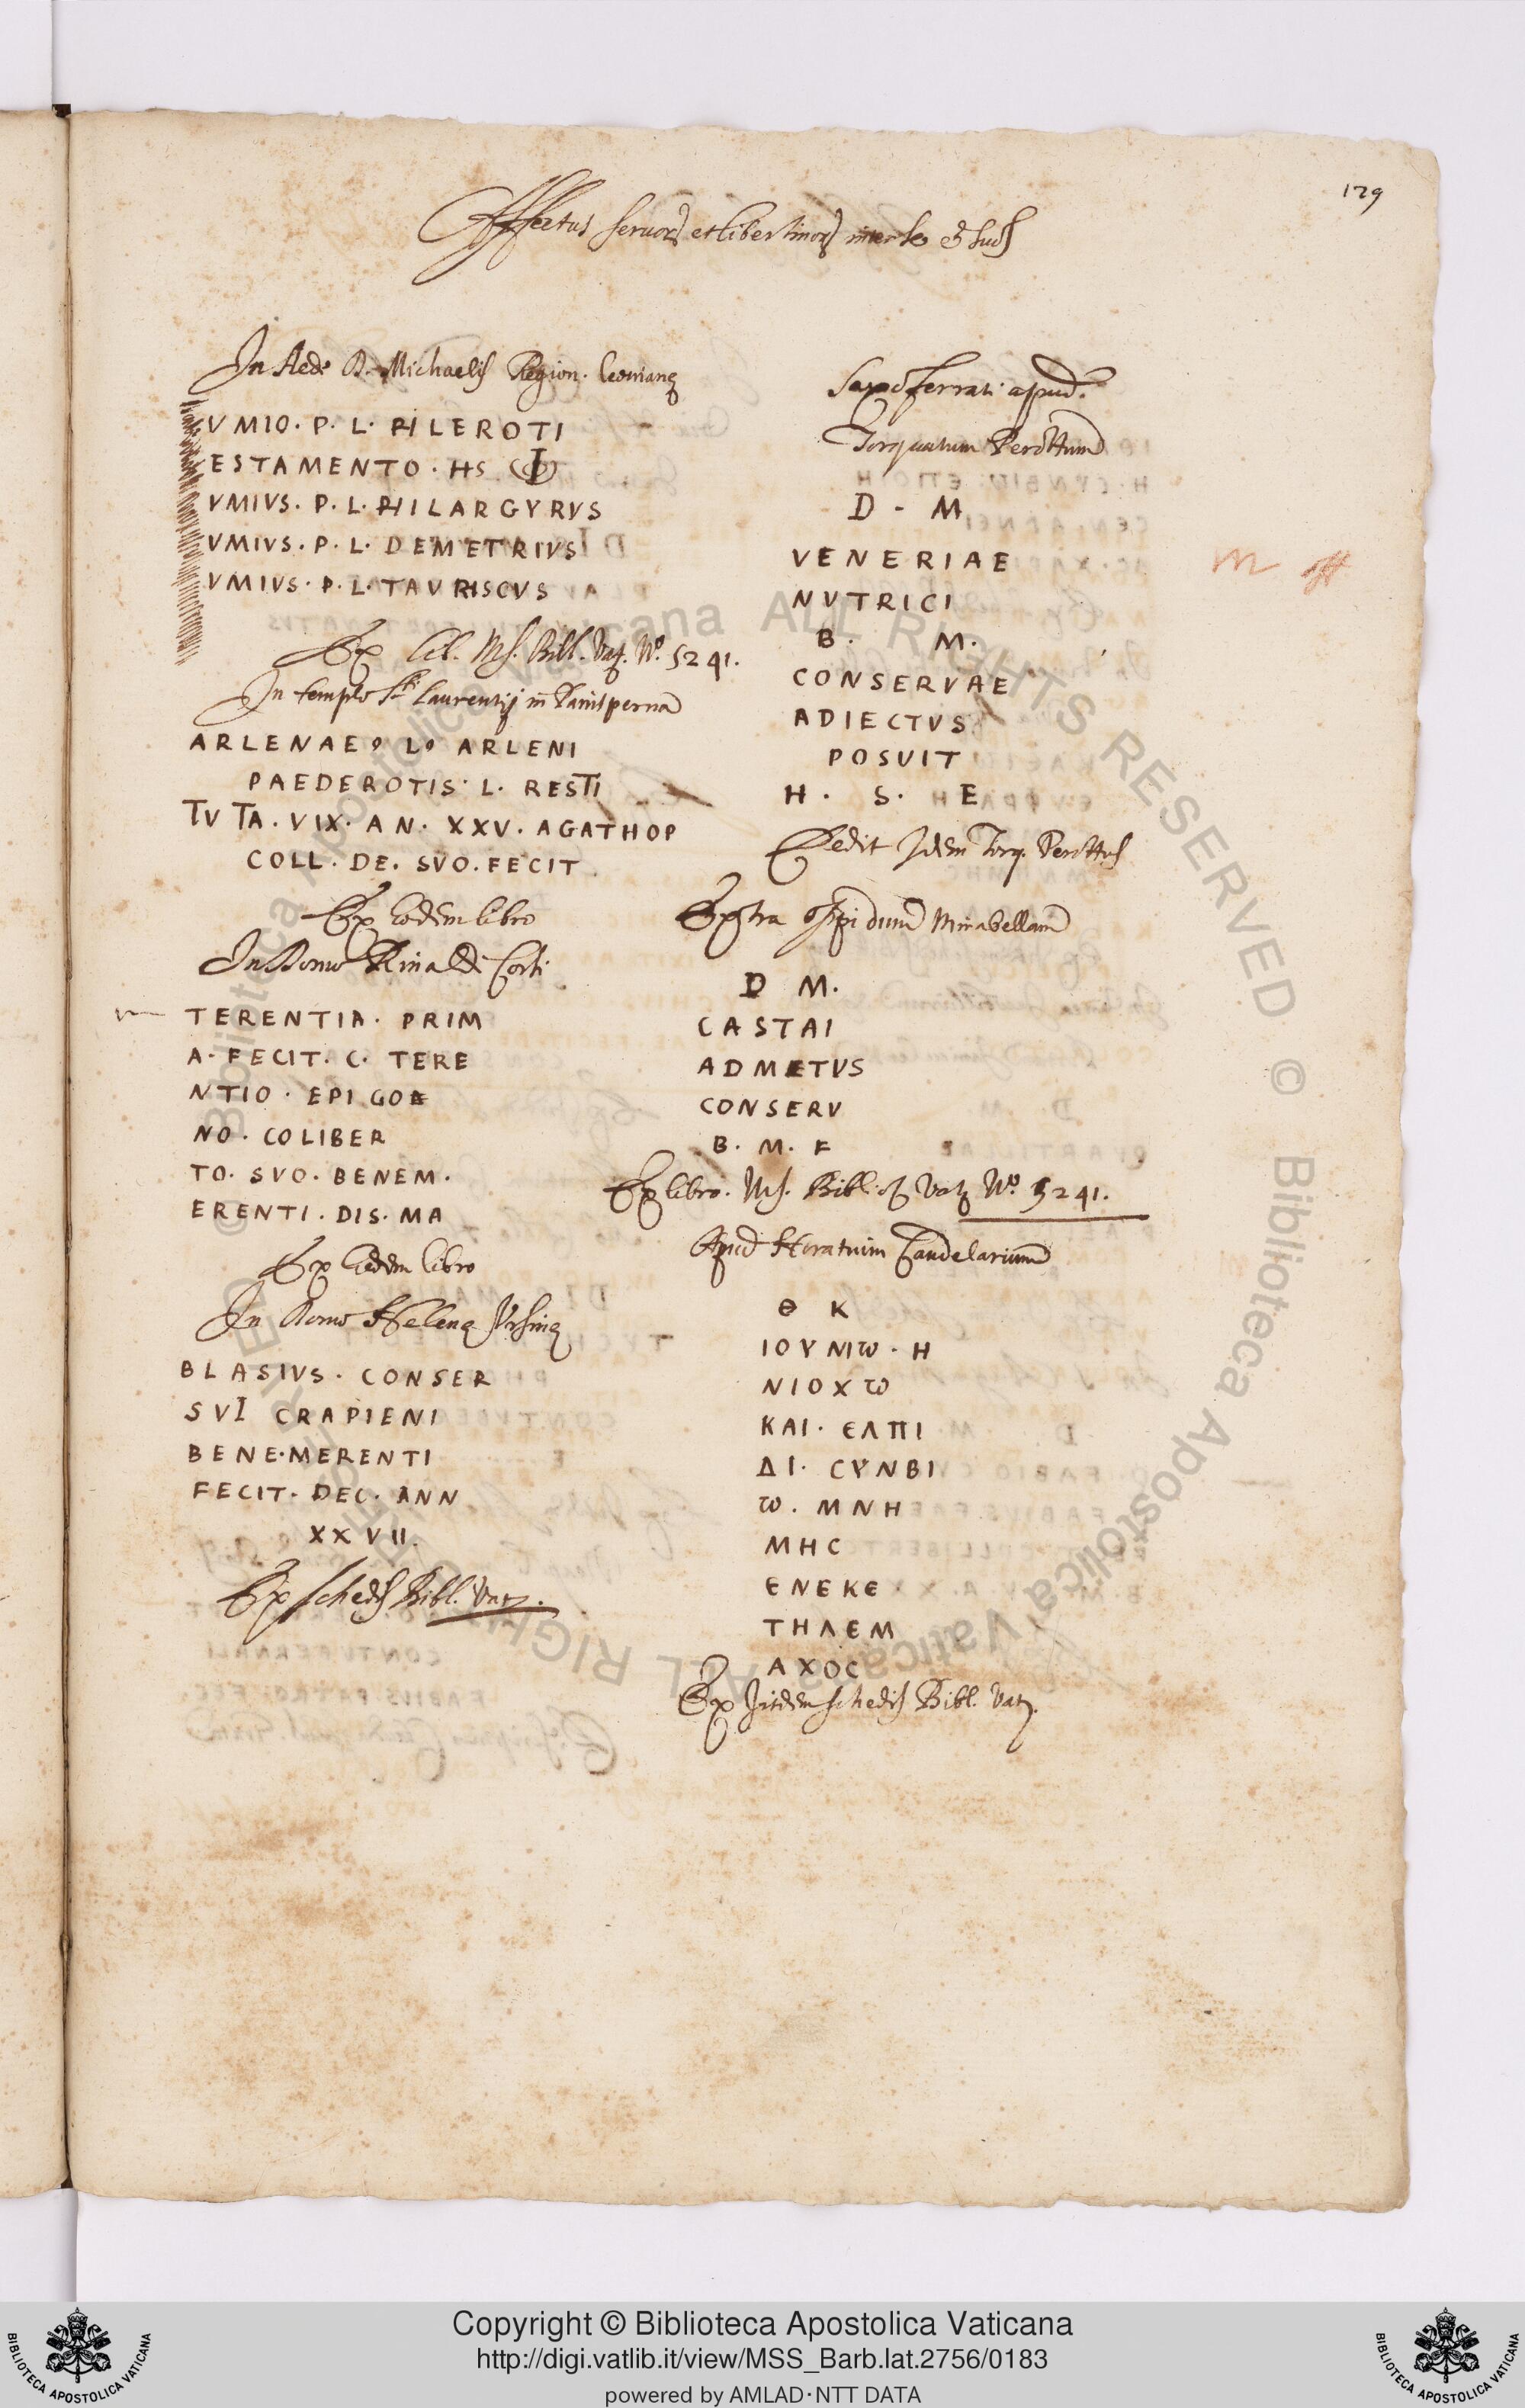 129
Affectus servorȝ et libertinorȝ inter se et suos
In Aede D. Michaelis Region. Leonianę
VMIO. P. L. PHILEROTI
ESTAMENTO. HS
VMIVS. P. L. PHILARGYRVS
VMIVS. P. L. DEMETRIVS
VMIVS. P. L. TAVRISCVS
Ex lib. Ms. Bibl. Vat. No. 5241.
In templo Sti Laurentij in Panisperna
ARLENAE L ARLENI
PAEDEROTIS. L. RESTI
TVTA. VIX. AN. XXV. AGATHOP
COLL. DE. SVO. FECIT
Ex eodem libro
In Domo Rinaldi Corti
TERENTIA. PRIM
A. FECIT. C. TERE
NTIO. EPIGOE
NO. COLIBER
TO. SVO. BENEM.
ERENTI. DIS. MA
Ex eodem libro
In Domo Helenę Vrsinę
BLASIVS. CONSER
SVI CRAPIENI
BENE.MERENTI
FECIT. DEC. ANN
XXVII.
Ex schedis Bibl. Vat.
Saxoferrati apud.
Torquatum Perottum
D - M
VENERIAE
NVTRICI
B. M.
CONSERVAE
ADIECTVS
POSVIT
H. S. E
Dedit Idem Torq. Perottus
Extra oppidum Mirabellam
D M.
CASTAI
ADMETVS
CONSERV
B. M. F
Ex libro. Ms. Biblioth Vat. No. 5241.
Apud Horatium Candelarium
Θ Κ
ΙΟΥΝΙω. Η
ΝΙΟΧω
ΚΑΙ. ЄΛΠΙ
ΔΙ. CΥΝΒΙ
ω. ΜΝΗ
ΜΗC
ЄΝЄΚЄ
ΤΗΛЄΜ
ΑΧΟC
Ex Iisdem schedis Bibl. Vat.
Copyright © Biblioteca Apostolica Vaticana
http://digi.vatlib.it/view/MSS_Barb.lat.2756/0183
powered by AMLAD·NTT DATA
BIBLIOTECA APOSTOLICA VATICANA
BIBLIOTECA APOSTOLICA VATICANA